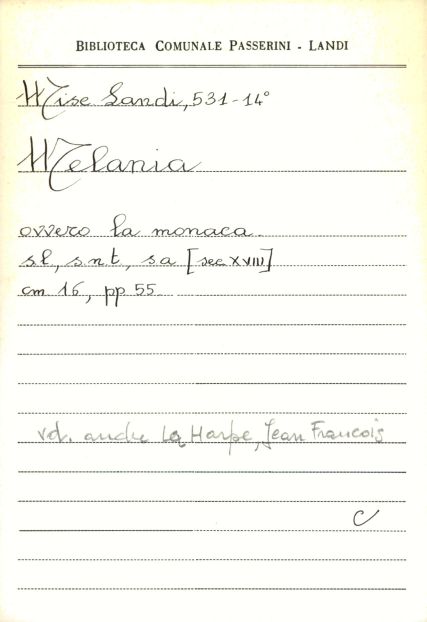 BIBLIOTECA COMUNALE PASSERINI - LANDI
Misc Landi, 531-14°
Melania
ovvero la monaca.
s.l, s.n.t, s.a [sec XVIII]
cm 16, pp 55.
vd. anche La Harpe, Jean Francois
C